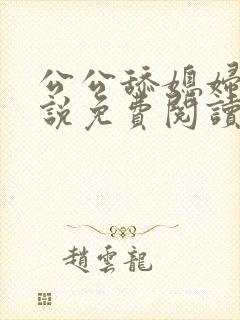 公公舔媳婦
說免費閱讀
趙雲龍